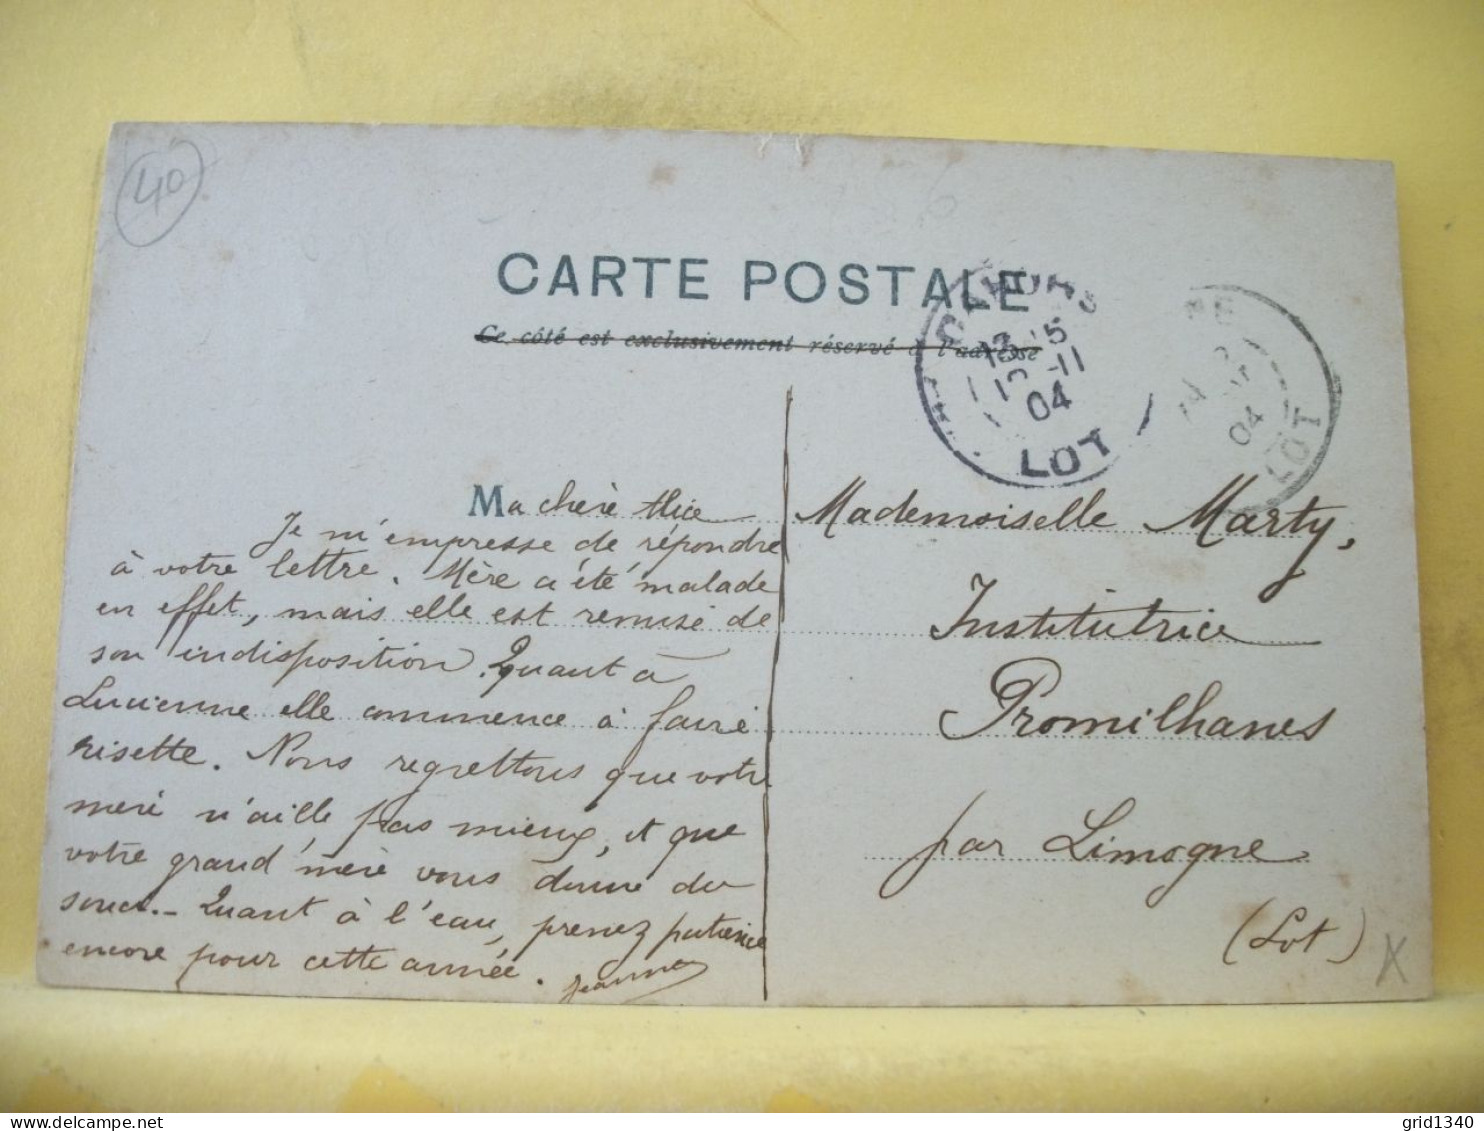 40
CARTE POSTALE
Ce côté est exclusivement réservé à l'adresse
CAHORS
13 15
12 -11
04
LOT
04
LOT
Ma chère Alice
Je m'empresse de répondre
à votre lettre. Mère a été malade
en effet, mais elle est remise de
son indisposition. Quant à
Lucienne elle commence à faire
risette. Nous regrettons que votre
mère n'aille pas mieux, et que
votre grand'mère vous donne du
souci.- Quant à l'eau, prenez patience
encore pour cette année. Jeanne
Mademoiselle Marty,
Institutrice
Promilhanes
par Limogne
(Lot)
X
grid1340